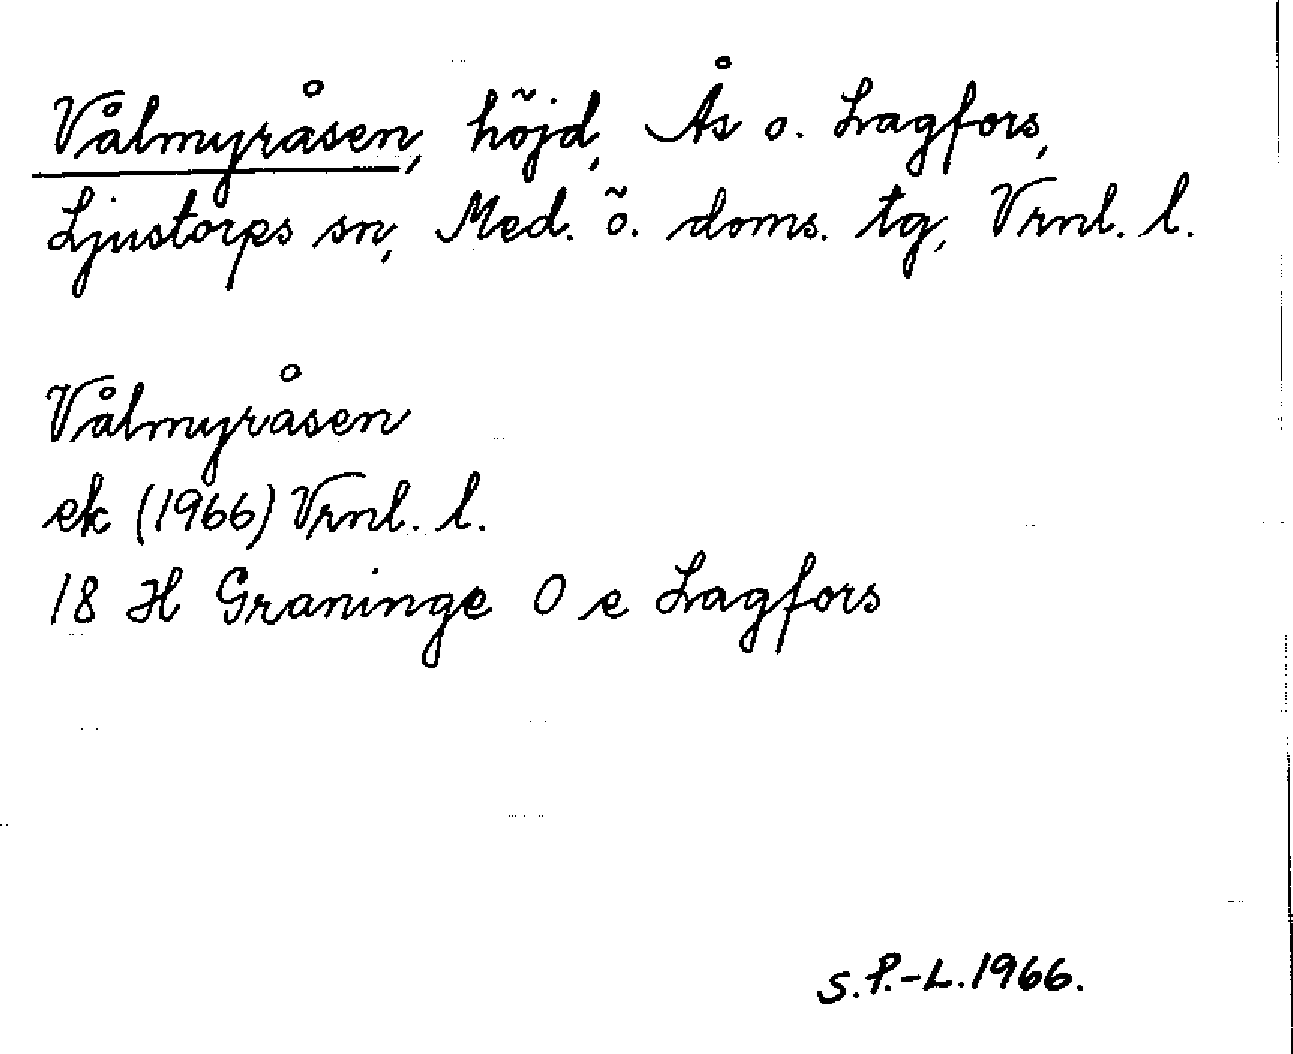 Vålmyråsen, höjd, Ås o. Lagfors,
Ljustorps sn, Med. ö. doms. tg, Vrnl. l.
Vålmyråsen
ek (1966) Vrnl. l.
18 H Graninge O e Lagfors
S.P.-L.1966.